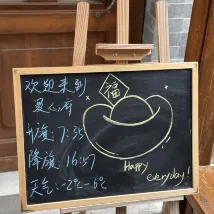 欢迎来到
升旗: 7:35
降旗: 16:57
天气: -2℃~6℃
福
Happy
everyday!